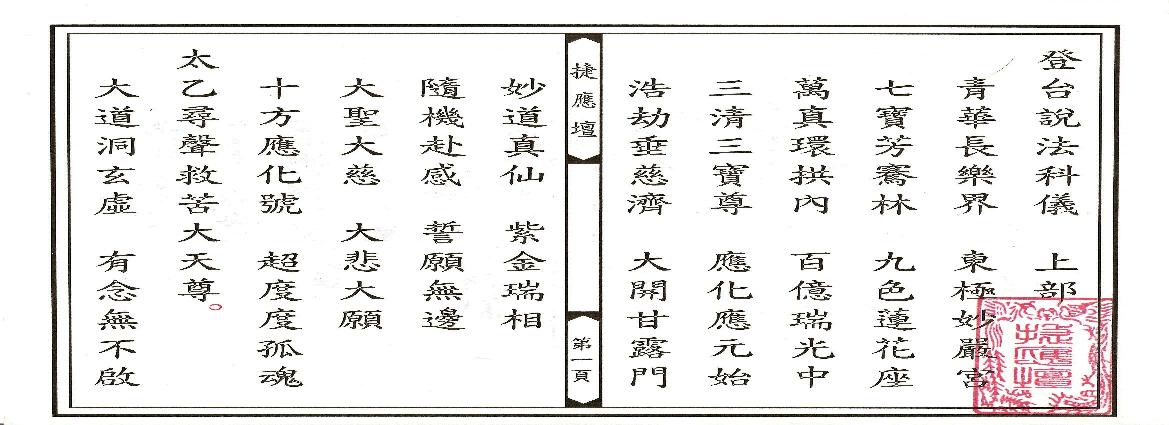 登台說法科儀　上部
青華長樂界　東極妙嚴宮
七寶芳騫林　九色蓮花座
萬真環拱內　百億瑞光中
三清三寶尊　應化應元始
浩劫垂慈濟　大開甘露門
捷應壇
第一頁
妙道真仙　紫金瑞相
隨機赴感　誓願無邊
大聖大慈　大悲大願
十方應化號　超度度孤魂
太乙尋聲救苦大天尊。
大道洞玄虛　有念無不啟